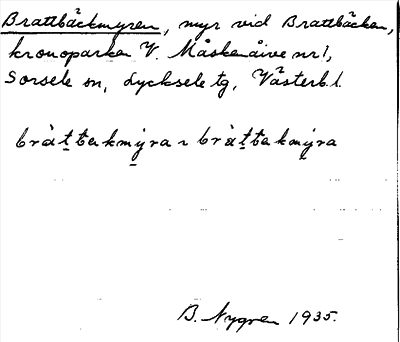 Brattbäckmyren, myr vid Brattbäcken,
kronoparken V. Måskenåive nr 1,
Sorsele sn, Lycksele tg, Västerb. l.
bràt̲takmy̲ra ~ bràt̲takmýra
B. Nygren 1935.